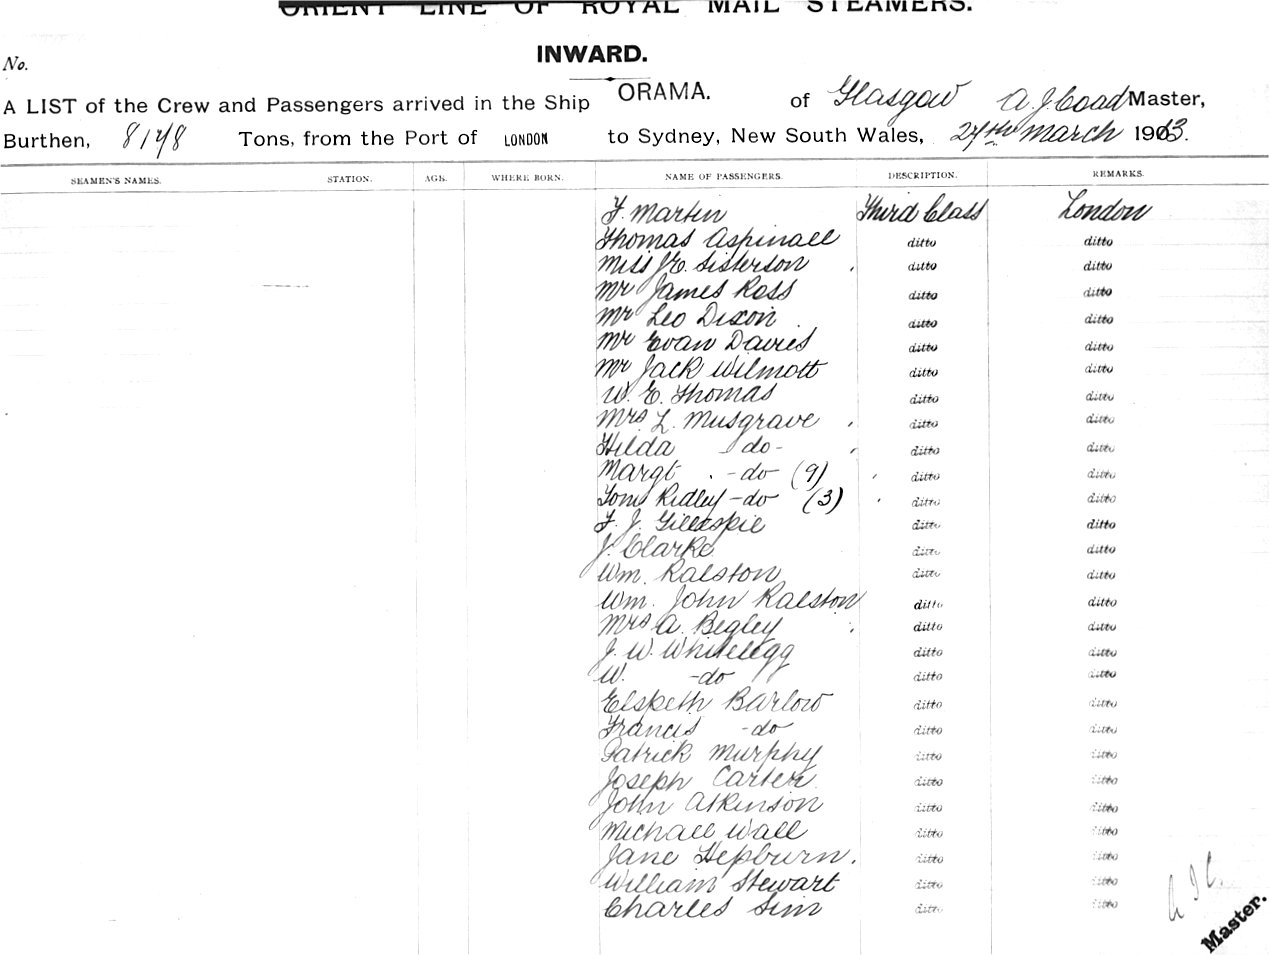 ORIENT LINE OF ROYAL MAIL STEAMERS.
INWARD.
No.
A LIST of the Crew and Passengers arrived in the Ship ORAMA. of Glasgow A J Coad Master,
Burthen, 8178 Tons, from the Port of LONDON to Sydney, New South Wales, 27th March 1913.
SEAMEN'S NAMES. STATION. AGE. WHERE BORN. NAME OF PASSENGERS. DESCRIPTION. REMARKS.
F. Martin Third Class London
Thomas Aspinall ditto ditto
Miss J E. Sisterson ditto ditto
Mr James Ross ditto ditto
Mr Leo Dixon ditto ditto
Mr Evan Davies ditto ditto
Mr Jack Wilmott ditto ditto
W. E. Thomas ditto ditto
Mrs L. Musgrave ditto ditto
Hilda -do- ditto ditto
Margt -do (9) ditto ditto
Tom Ridley -do (3) ditto ditto
F. J. Gillespie ditto ditto
J. Clarke ditto ditto
Wm. Ralston ditto ditto
Wm. John Ralston ditto ditto
Mrs A. Begley ditto ditto
J. W. Whitelegg ditto ditto
W. -do ditto ditto
Elspeth Barlow ditto ditto
Francis -do ditto ditto
Patrick Murphy ditto ditto
Joseph Carter ditto ditto
John Atkinson ditto ditto
Michael Wall ditto ditto
Jane Hepburn. ditto ditto
William Stewart ditto ditto
Charles Sim ditto ditto
A J C
Master.